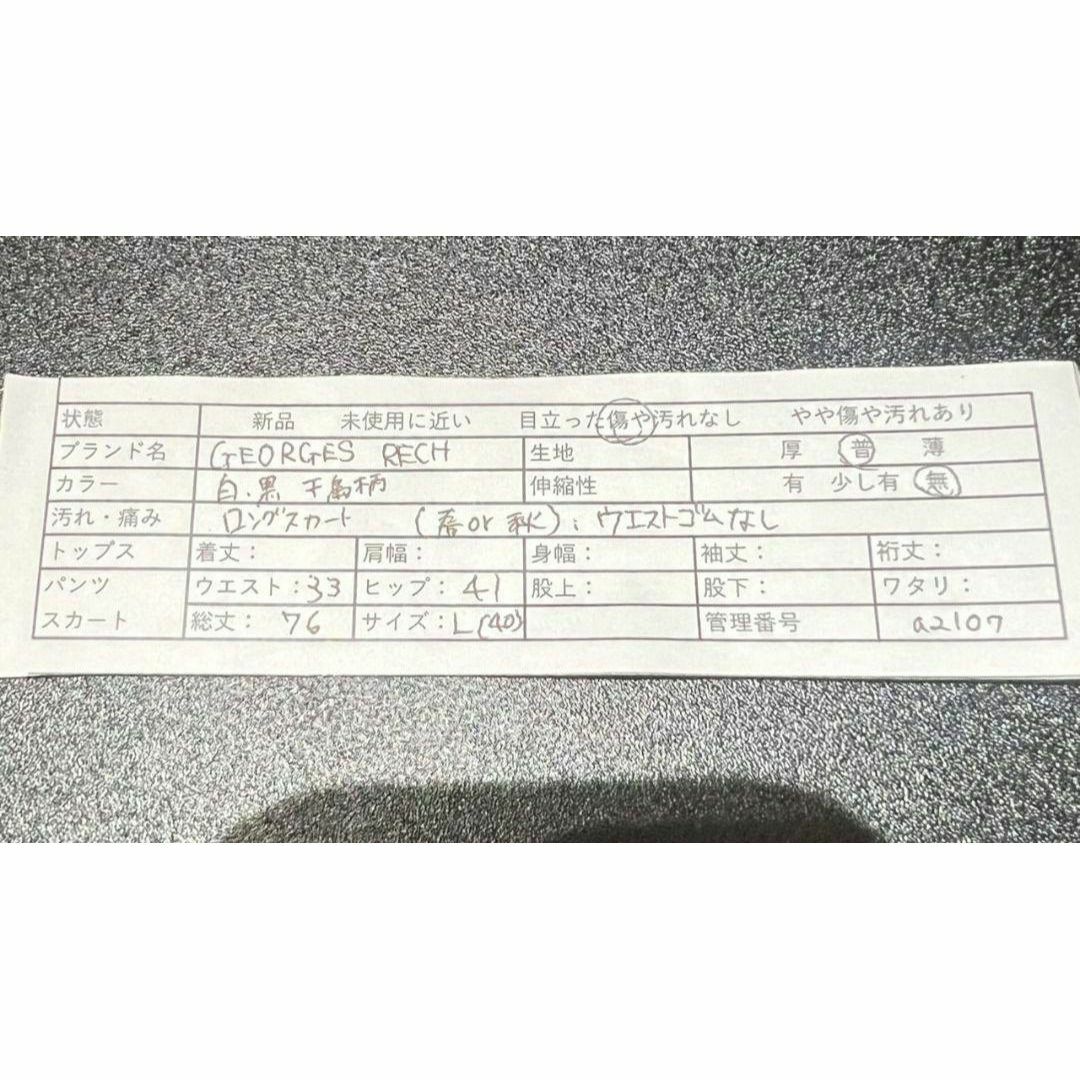 状態 新品 未使用に近い 目立った傷や汚れなし やや傷や汚れあり
ブランド名 GEORGES RECH 生地 厚 普 薄
カラー 白.黒 千鳥柄 伸縮性 有 少し有 無
汚れ・痛み ロングスカート (春or秋); ウエストゴムなし
トップス 着丈: 肩幅: 身幅: 袖丈: 裄丈:
パンツ ウエスト:33 ヒップ:41 股上: 股下: ワタリ:
スカート 総丈: 76 サイズ:L(40) 管理番号 a2107